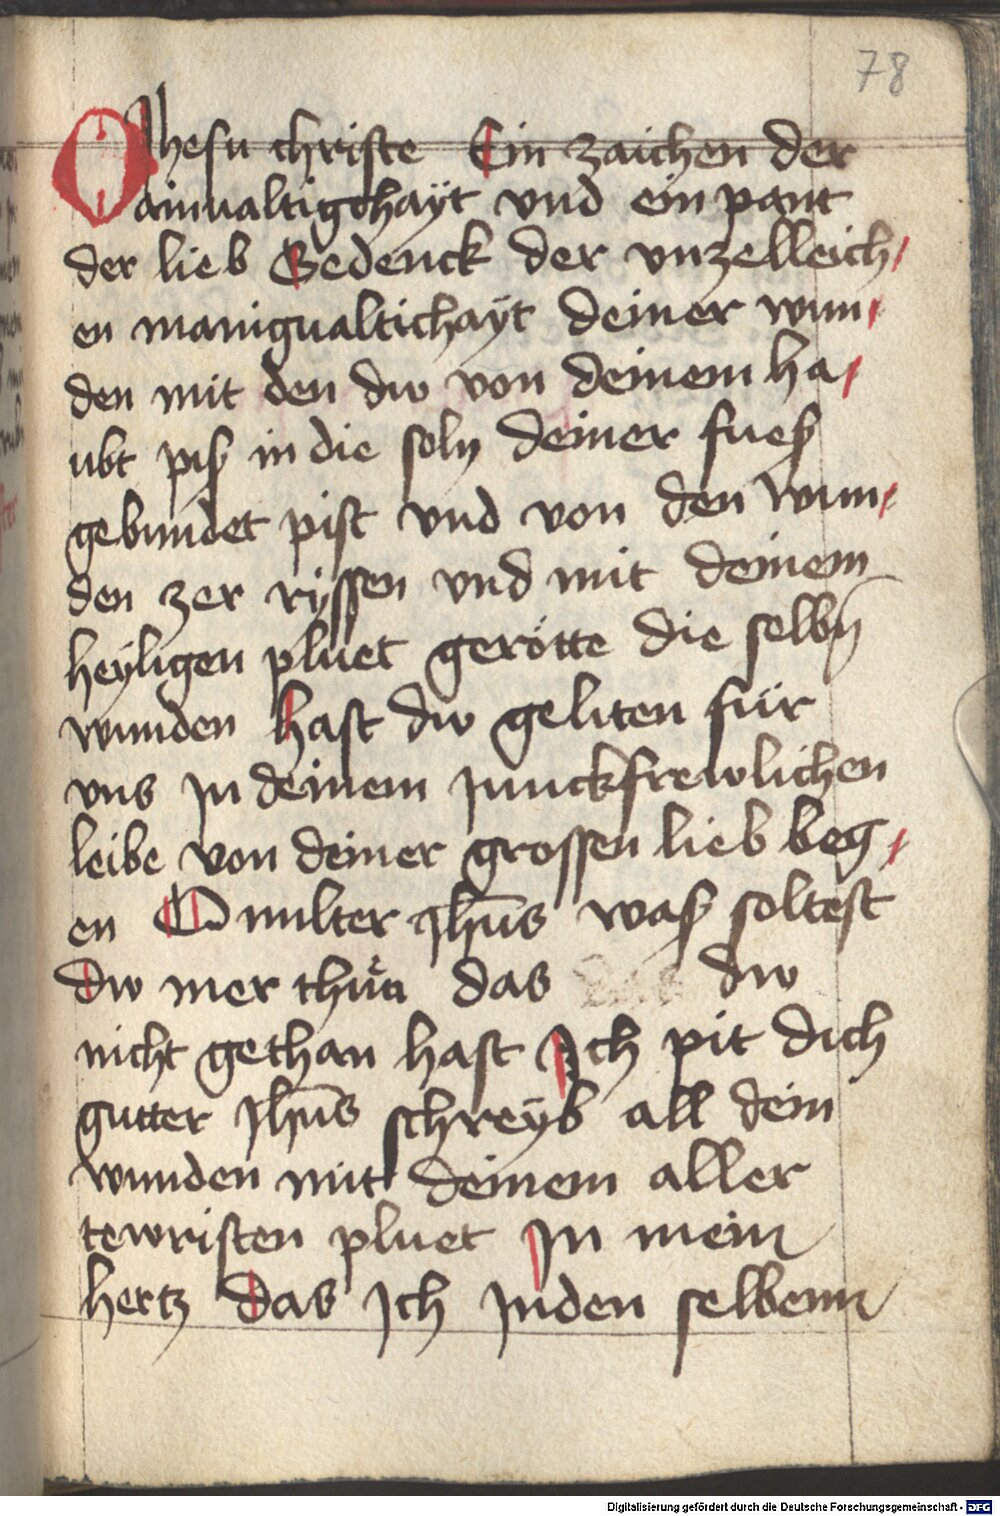 78
O Jhesu christe Ein zaichen der
ainualtigchaÿt vnd ein pant
der lieb Gedenck der vnzelleich/
en manigualtichaÿt deiner wun/
den mit den dw von deinem ha/
ubt piß in die soln deiner fueß
gebundet pist vnd von den wun/
den zer rÿssen vnd mit deinem
heÿligen pluet gerötte die selbn
wunden hast dw geliten für
vns Jn deinem Junckfrewlichen
leibe von deiner grossen lieb beg/
en O milter Jhūs waß soltest
dw mer thún das dw
nicht gethan hast Ich pit dich
gutter Jhūs schreÿb all dein
wunden mit deinem aller
tewristen pluet Jn mein
hertz das Jch Jnden selbenn
Digitalisierung gefördert durch die Deutsche Forschungsgemeinschaft - DFG